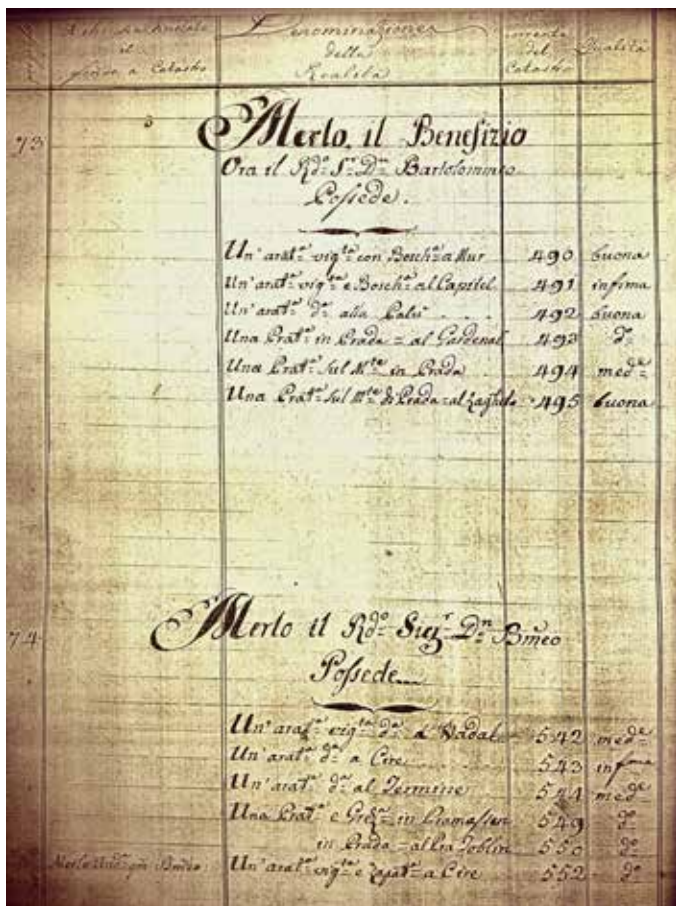 Denominazione
della
Realità
del
Catastro
Qualità
73
Merlo, il Benefizio
Ora il Rdo. Sr. Dn. Bartolommeo
Possede.
Un' arata. vigta. con Boscha. a Mur 490 buona
Un' arata. vigta. e Boscha. al Capitel 491 infima
Un' arata. da. alla Palu 492 buona
Una Prata. in Prada = al Gardenal 493 da.
Una Prata. sul Mte. in Prada 494 meda.
Una Prata. sul Mte. di Prada = al 495 buona
74
Merlo il Rdo. Sigr. Dn. Bmeo
Possede
Un' arata. vigta. da. a Nadal 542 meda.
Un' arata. da. a Cire 543 infima
Un' arata. da. al Termine 544 meda.
Una Prata. e in 549 da.
in Prada = al Pra Toblin 550 da.
Merlo qm. Bmeo. Un' arata. vigta. e a Cire 552 da.